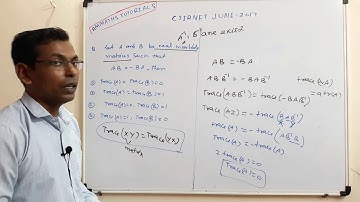 MATHS TUTORIALS
CSIRNET JUNE-2017
Let A and B be real invertible
matrices such that
AB = -BA, then
① Trace(A) = Trace(B) = 0
② Trace(A) = Trace(B) = 1
③ Trace(A) = 0, Trace(B) = 1
④ Trace(A) = 1, Trace(B) = 0
Trace(XY) = Trace(YX)
A⁻¹, B⁻¹ are exist
AB = -BA
ABB⁻¹ = -BAB⁻¹
Trace(ABB⁻¹) = Trace(-BAB⁻¹)
Trace(AI) = -trace(BAB⁻¹)
Trace(A) = -trace(AB⁻¹B)
Trace(A) = -Trace(A)
2 trace(A) = 0
Trace(A) = 0